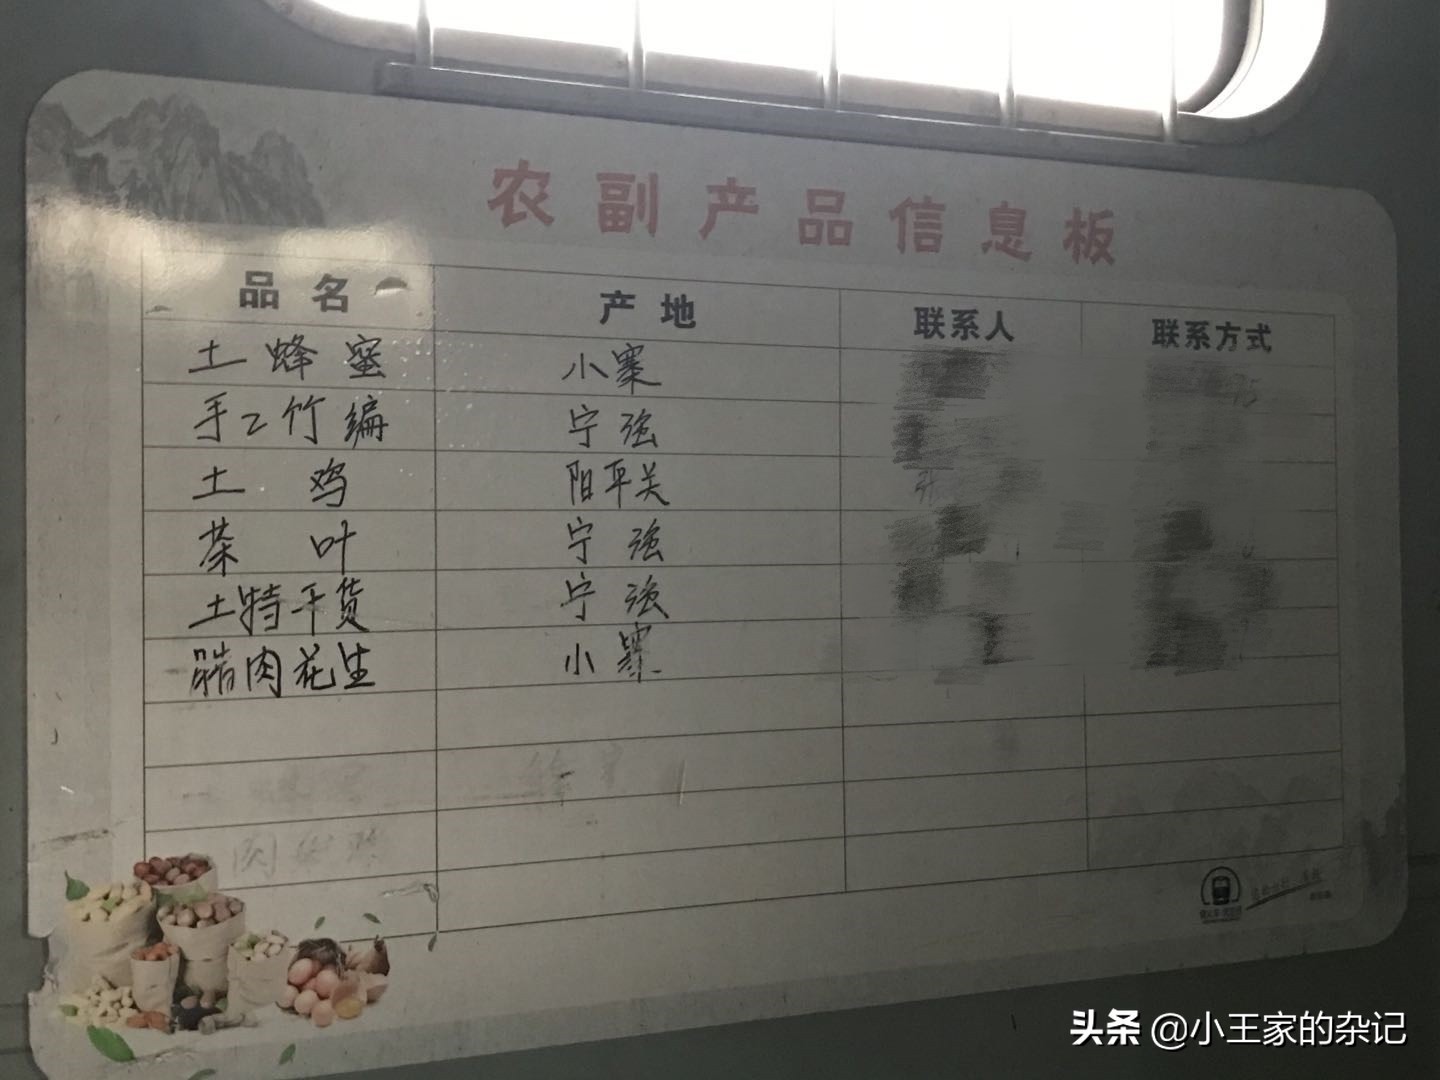 农副产品信息板
品名 产地 联系人 联系方式
土蜂蜜 小寨
手工竹编 宁强
土鸡 阳平关
茶叶 宁强
土特干货 宁强
腊肉花生 小寨
头条 @小王家的杂记